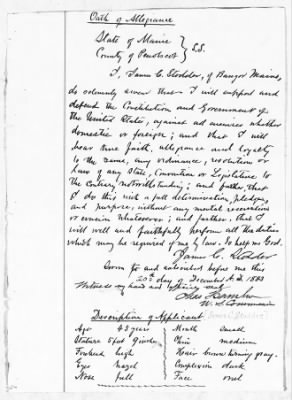 Oath of Allegiance
State of Maine
County of Penobscot } S.S.
I, James C. Stodder, of Bangor Maine,
do solemnly swear that I will support and
defend the Constitution and Government of
the United States, against all enemies whether
domestic or foreign; and that I will
bear true faith, allegiance and loyalty
to the same, any ordinance, resolution or
Law of any State, Convention or Legislature to
the contrary notwithstanding; and further, that
I do this with a full determination, pledge,
and purpose, without any mental reservation
or evasion whatsoever; and further, that I
will well and faithfully perform all the duties
which may be required of me by law. So help me God.
James C. Stodder
Sworn to and subscribed before me this
20th day of December A.D. 1883
Witness my hand and
U.S. Commissioner
Description of Applicant
Age 43 years
Mouth small
Stature 5 feet 9 inches
Chin medium
Forehead high
Hair brown turning gray
Eyes hazel
Complexion dark
Nose full
Face oval